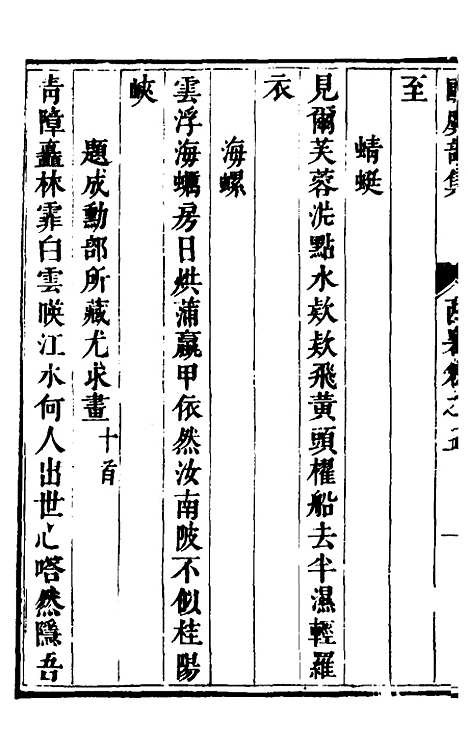 至
蜻蜓
見爾芙蓉沼點水欵欵飛黃頭櫂船去半濕輕羅
衣
海螺
雲浮海蠣房日烘蒲蠃甲依然汝南陂不似桂陽
峽
題成勳部所藏尤求畫十首
青障矗林霏白雲暎江水何人出世心嗒然隱吾